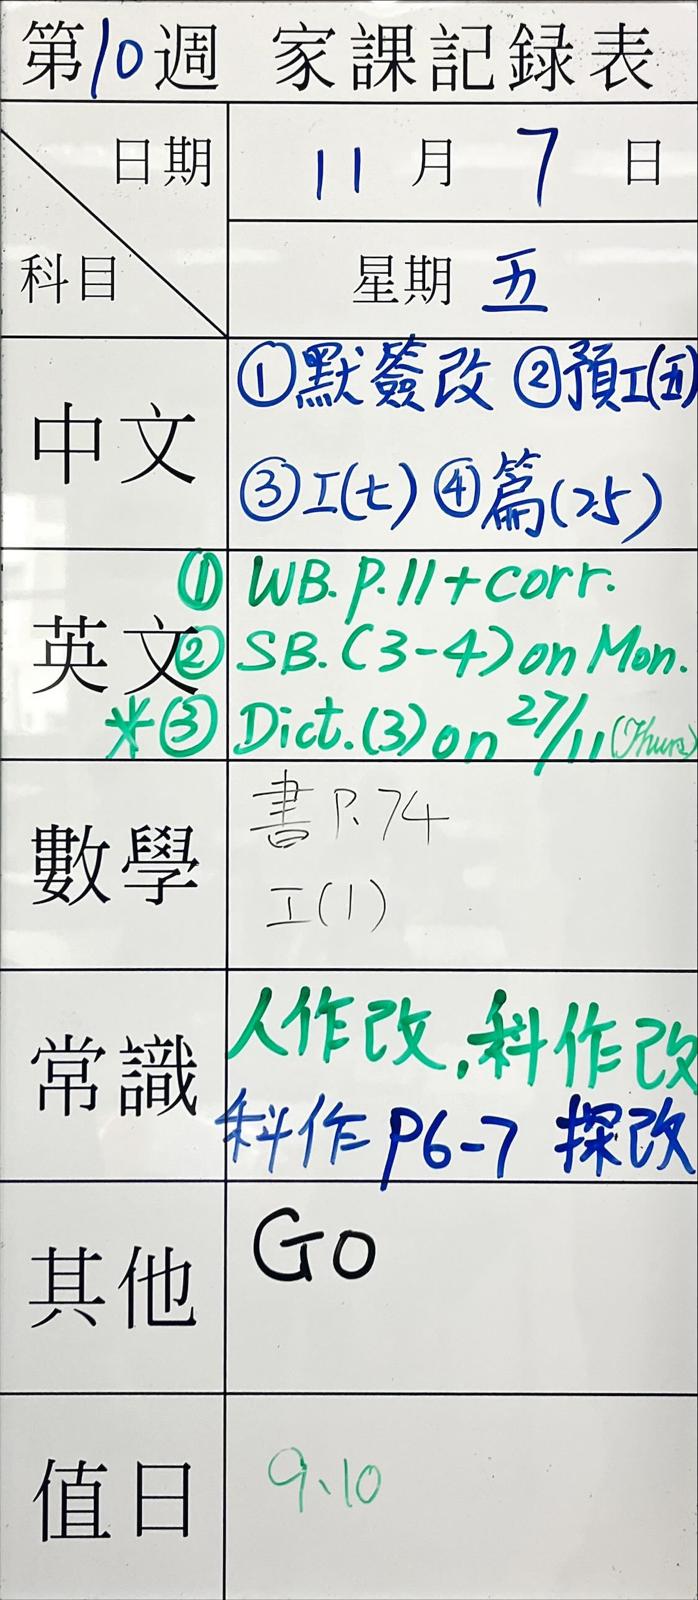 第10週 家課記録表
日期 11月7日
科目 星期五
中文 ①默簽改 ②預工(五)
③工(七) ④篇(25)
① WB. P.11 + corr.
英文 ② SB. (3-4) on Mon.
*③ Dict. (3) on 27/11 (Thurs)
數學 書 P.74
工(1)
常識 人作改, 科作改
科作 P6-7 探改
其他 Go
值日 9、10